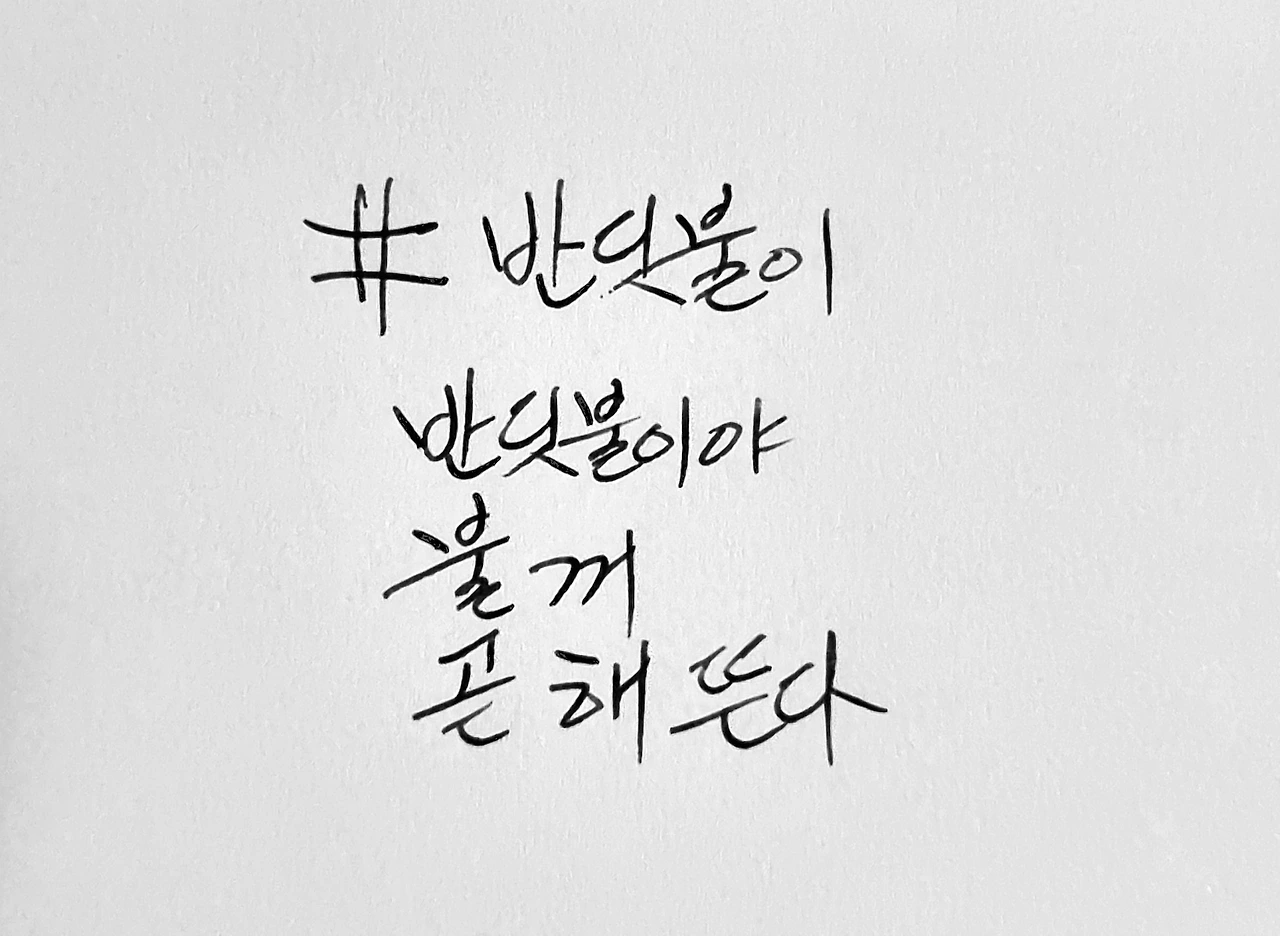 # 반딧불이
반딧불이야
불 꺼
곧 해 뜬다